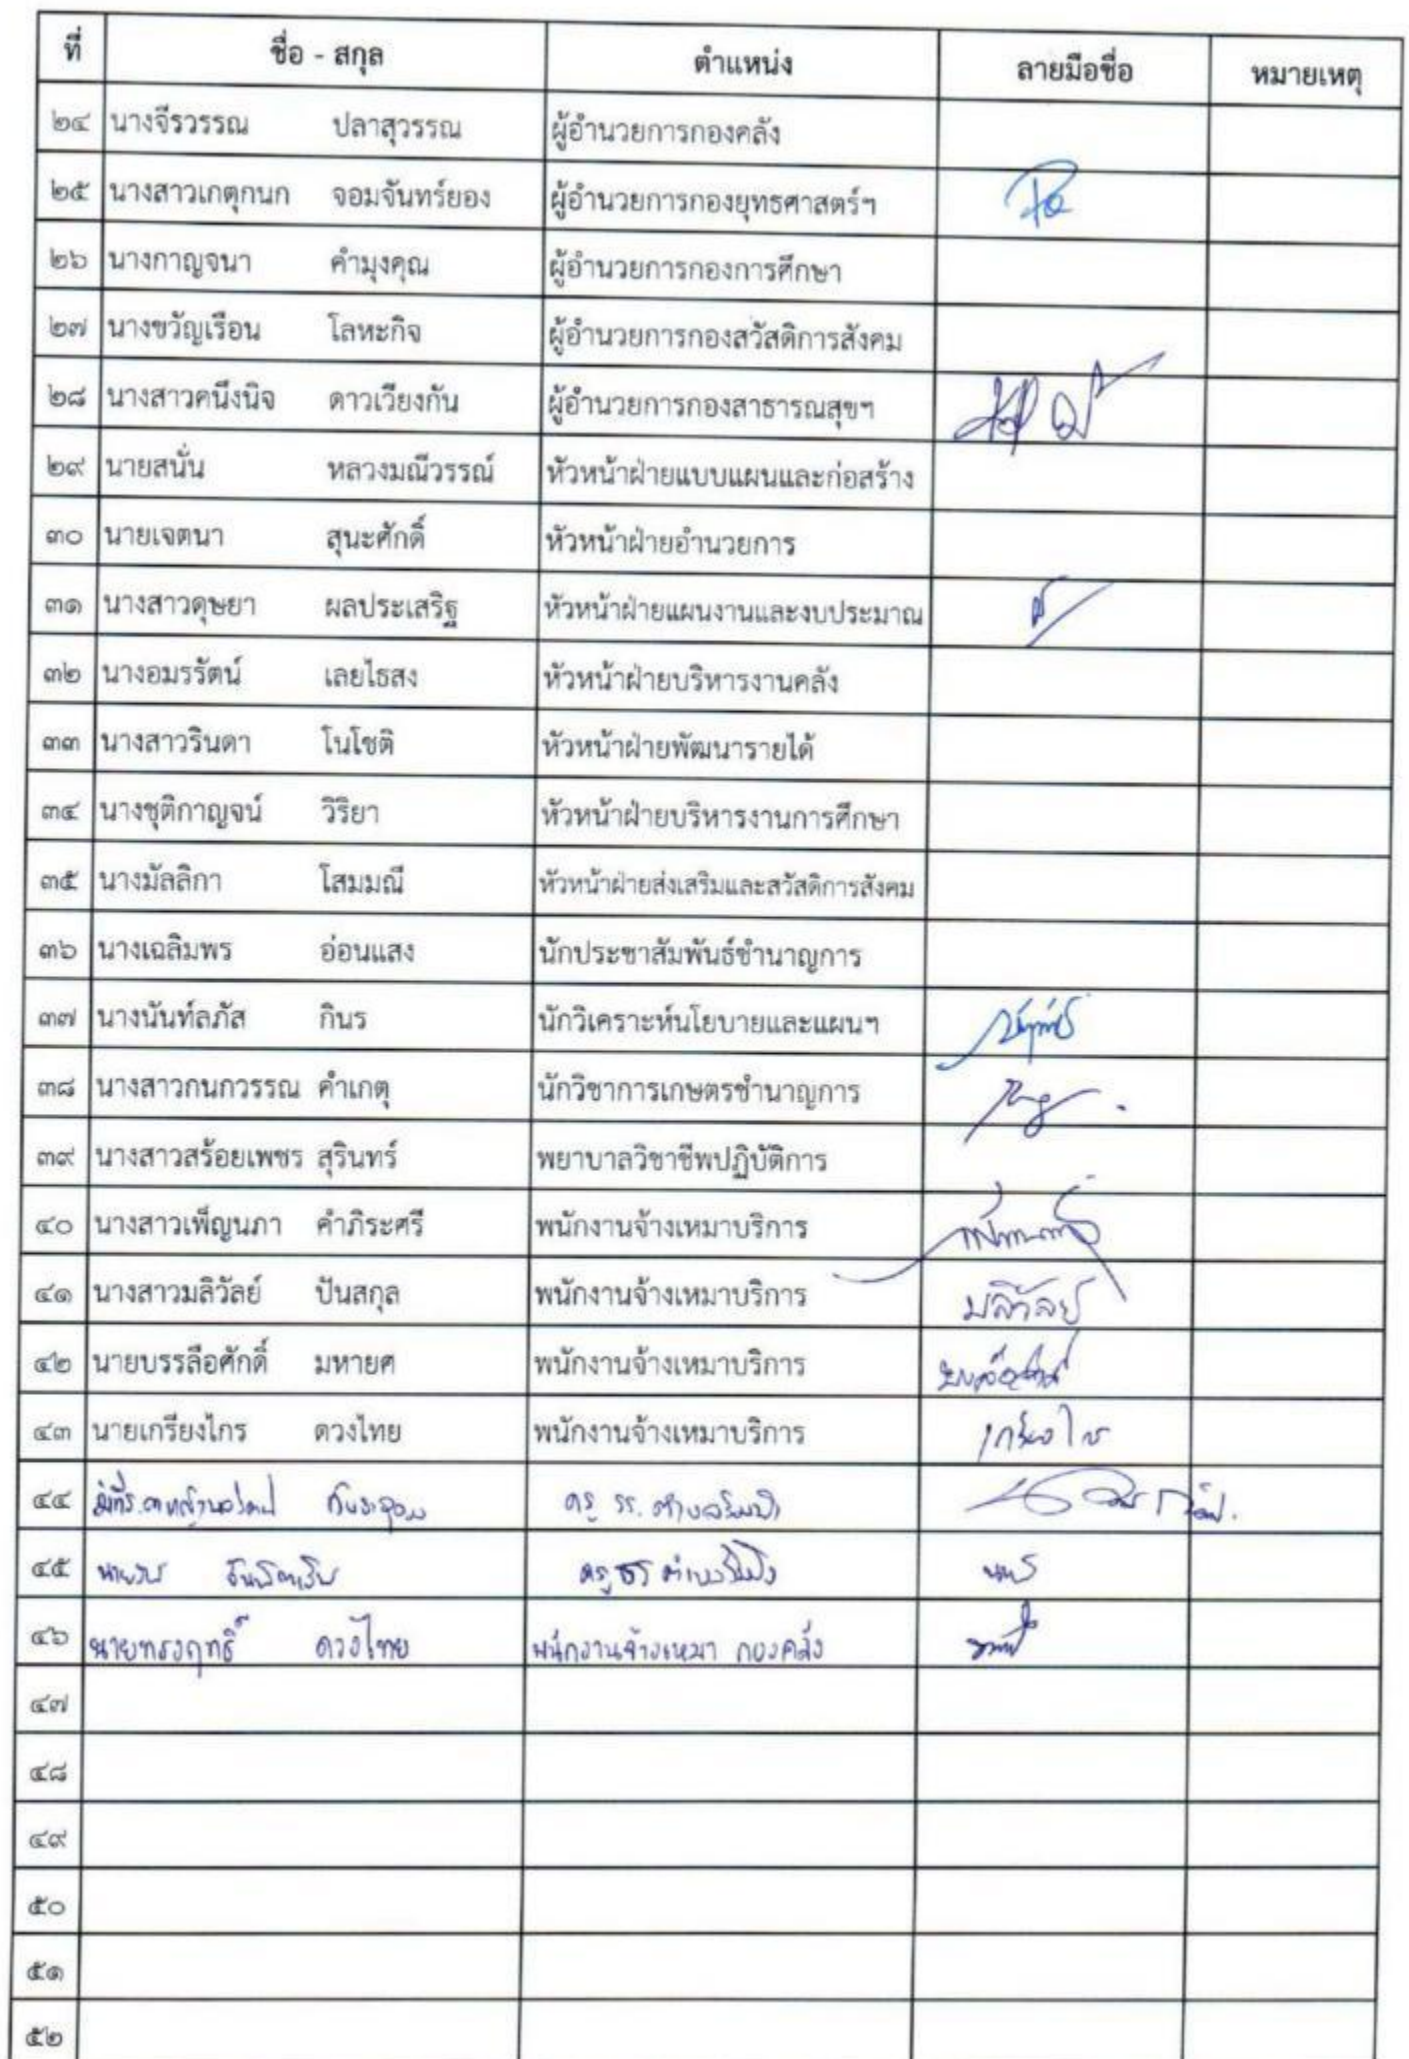 ที่ ชื่อ - สกุล ตำแหน่ง ลายมือชื่อ หมายเหตุ
๒๔ นางจีรวรรณ ปลาสุวรรณ ผู้อำนวยการกองคลัง
๒๕ นางสาวเกตุกนก จอมจันทร์ยอง ผู้อำนวยการกองยุทธศาสตร์ฯ
๒๖ นางกาญจนา คำมุงคุณ ผู้อำนวยการกองการศึกษา
๒๗ นางขวัญเรือน โลหะกิจ ผู้อำนวยการกองสวัสดิการสังคม
๒๘ นางสาวคนึงนิจ ดาวเวียงกัน ผู้อำนวยการกองสาธารณสุขฯ
๒๙ นายสนั่น หลวงมณีวรรณ์ หัวหน้าฝ่ายแบบแผนและก่อสร้าง
๓๐ นายเจตนา สุนะศักดิ์ หัวหน้าฝ่ายอำนวยการ
๓๑ นางสาวดุษยา ผลประเสริฐ หัวหน้าฝ่ายแผนงานและงบประมาณ
๓๒ นางอมรรัตน์ เลยไธสง หัวหน้าฝ่ายบริหารงานคลัง
๓๓ นางสาวรินดา โนโชติ หัวหน้าฝ่ายพัฒนารายได้
๓๔ นางชุติกาญจน์ วิริยา หัวหน้าฝ่ายบริหารงานการศึกษา
๓๕ นางมัลลิกา โสมมณี หัวหน้าฝ่ายส่งเสริมและสวัสดิการสังคม
๓๖ นางเฉลิมพร อ่อนแสง นักประชาสัมพันธ์ชำนาญการ
๓๗ นางนันท์ลภัส กินร นักวิเคราะห์นโยบายและแผนฯ
๓๘ นางสาวกนกวรรณ คำเกตุ นักวิชาการเกษตรชำนาญการ
๓๙ นางสาวสร้อยเพชร สุรินทร์ พยาบาลวิชาชีพปฏิบัติการ
๔๐ นางสาวเพ็ญนภา คำภิระศรี พนักงานจ้างเหมาบริการ
๔๑ นางสาวมลิวัลย์ ปันสกุล พนักงานจ้างเหมาบริการ มลิวัลย์
๔๒ นายบรรลือศักดิ์ มหายศ พนักงานจ้างเหมาบริการ
๔๓ นายเกรียงไกร ดวงไทย พนักงานจ้างเหมาบริการ เกรียงไกร
๔๔ ครู รร.
๔๕ ครู
๔๖ นายทรงฤทธิ์ ดวงไทย พนักงานจ้างเหมา กองคลัง
๔๗
๔๘
๔๙
๕๐
๕๑
๕๒